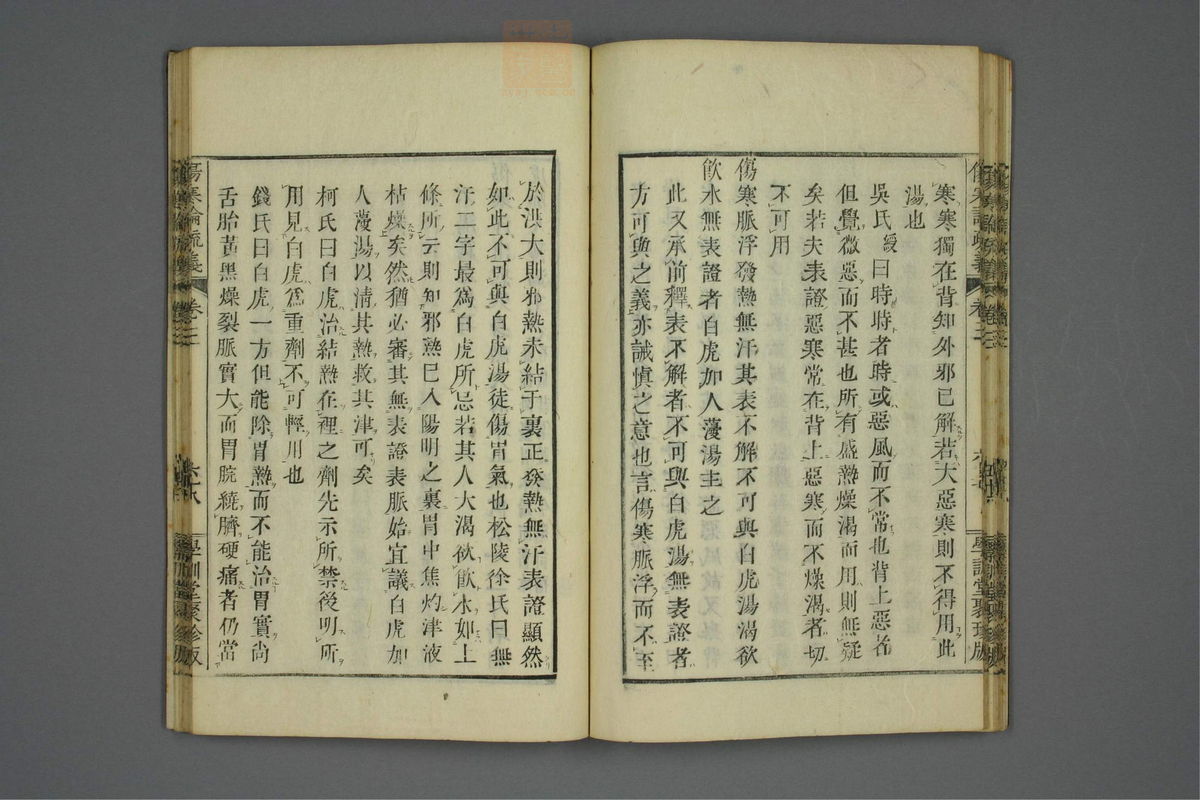 寒寒獨在背知外邪已解若大惡寒則不得用此
湯也
吳氏綬曰時時者時或惡風而不常也背上惡者
但覺微惡而不甚也所有盛熱燥渴而用則無疑
矣若夫表證惡寒常在背上惡寒而不燥渴者切
不可用
傷寒脈浮發熱無汗其表不解不可與白虎湯渴欲
飮水無表證者白虎加人薓湯主之
此又承前釋表不解者不可與白虎湯無表證者
方可與之義亦誠慎之意也言傷寒脈浮而不至
於洪大則邪熱未結于裏正發熱無汗表證顯然
如此不可與白虎湯徒傷胃氣也松陵徐氏曰無
汗二字最爲白虎所忌若其人大渴欲飮水如上
條所云則知邪熱已入陽明之裏胃中焦灼津液
枯燥矣然猶必審其無表證表脈始宜議白虎加
人薓湯以清其熱救其津可矣
柯氏曰白虎治結熱在裡之劑先示所禁後明所
用見白虎爲重劑不可輕用也
錢氏曰白虎一方但能除胃熱而不能治胃實尙
舌胎黃黑燥裂脈實大而胃脘繞臍硬痛者仍當
傷寒論疏義
卷三
學訓堂聚珍版